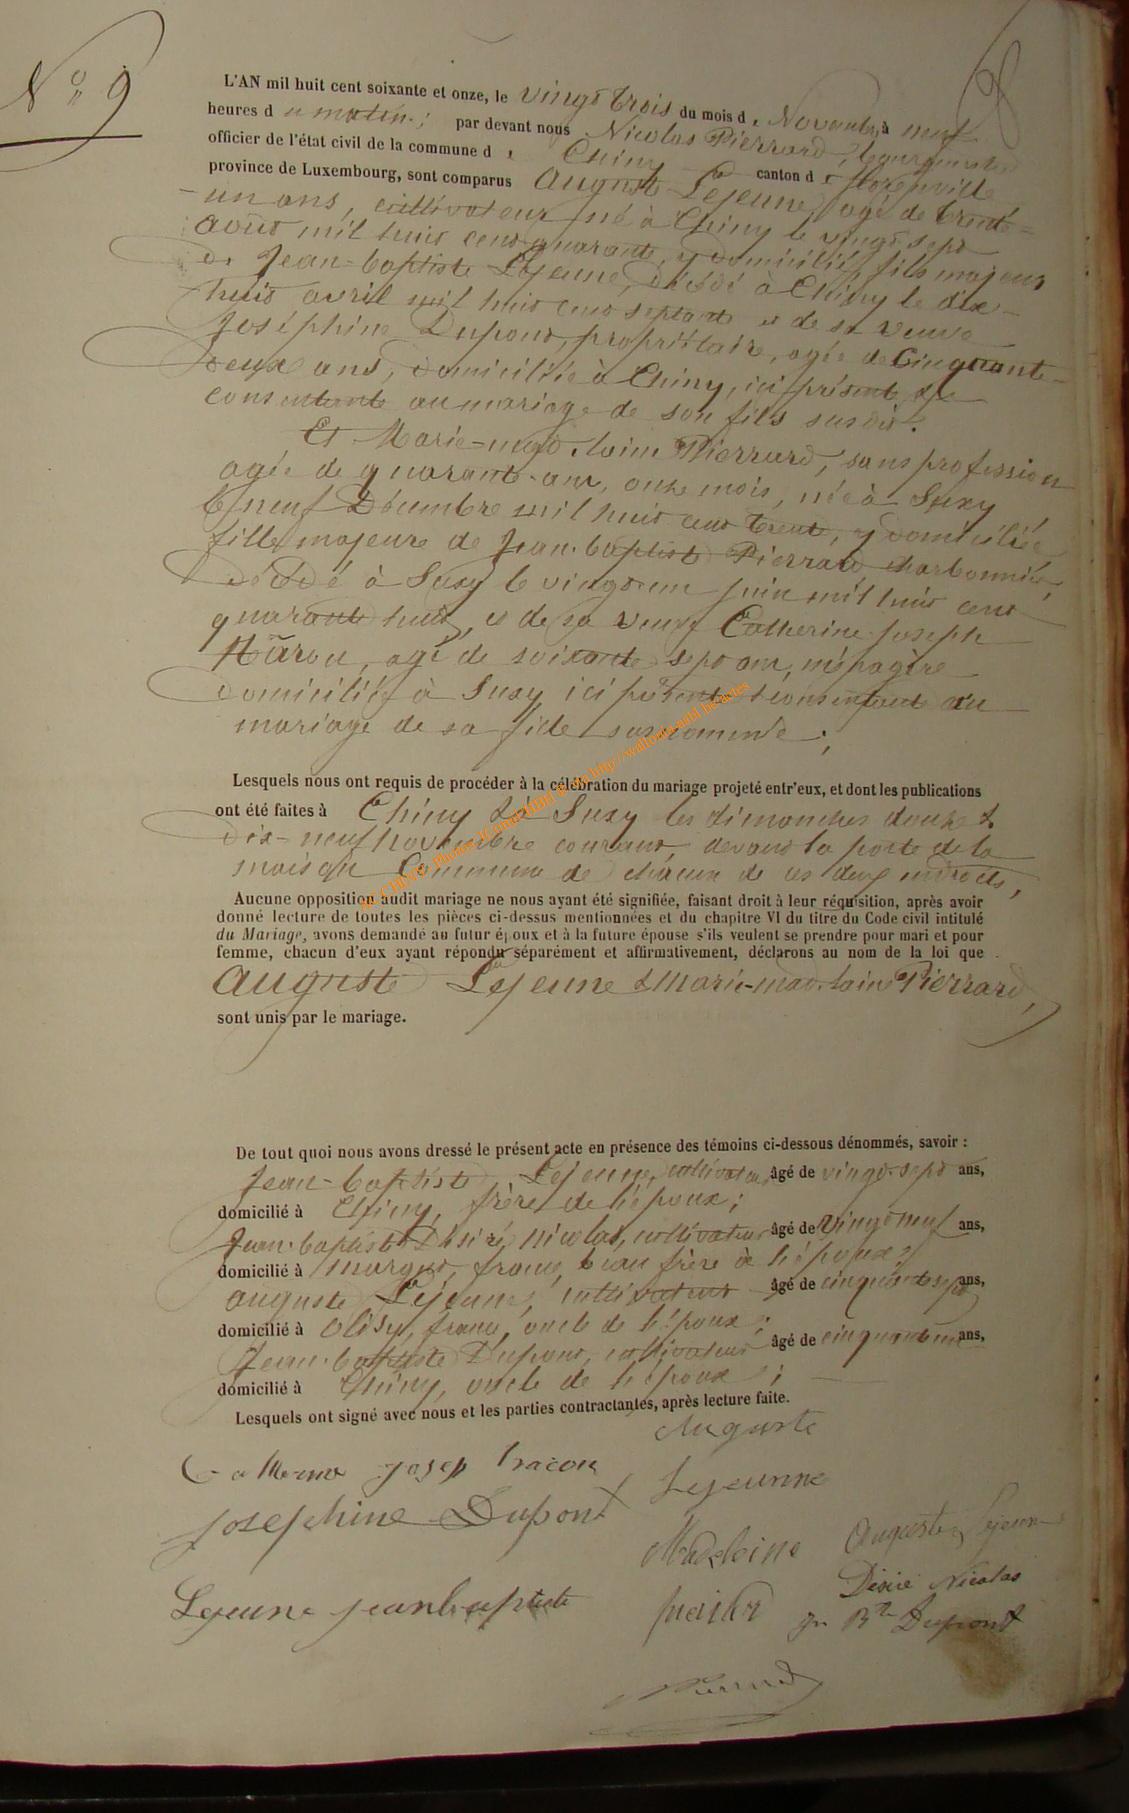 N° 9
L'AN mil huit cent soixante et onze, le vingt trois du mois de Novembre, à neuf
heures du matin; par devant nous Nicolas Pierrard, bourgmestre
officier de l'état civil de la commune de Chiny canton de florenville
province de Luxembourg, sont comparus Auguste Lejeune, agé de trente-
-un ans, cultivateur né à Chiny le vingt sept
août mil huit cent quarante, y domicilié, fils majeur
de Jean-baptiste Lejeune, décédé à Chiny le dix-
huit avril mil huit cent septante et de sa veuve
Joséphine Dupont, propriétaire, agée de Cinquante-
deux ans, domiciliée à Chiny, ici présente &
consentante au mariage de son fils susdit.
Et Marie-madelaine Pierrard, sans profession
agée de quarante ans, onze mois, née à Suxy
le neuf Décembre mil huit cent trente, y domiciliée
fille majeure de Jean-baptiste Pierrard charbonnier,
décédé à Suxy le vingt-un juin mil huit cent
quarante huit, et de sa veuve Catherine Joseph
agé de soixante sept ans, ménagère
domiciliée à Suxy ici présente & consentante au
mariage de sa fille susnommée;
Lesquels nous ont requis de procéder à la célébration du mariage projeté entr'eux, et dont les publications
ont été faites à Chiny & à Suxy les dimanches douze &
dix-neuf novembre courant, devant la porte de la
maison Commune de chacun de ces deux endroits,
Aucune opposition audit mariage ne nous ayant été signifiée, faisant droit à leur réquisition, après avoir
donné lecture de toutes les pièces ci-dessus mentionnées et du chapitre VI du titre du Code civil intitulé
du Mariage, avons demandé au futur époux et à la future épouse s'ils veulent se prendre pour mari et pour
femme, chacun d'eux ayant répondu séparément et affirmativement, déclarons au nom de la loi que
Auguste Lejeune & Marie-madelaine Pierrard,
sont unis par le mariage.
De tout quoi nous avons dressé le présent acte en présence des témoins ci-dessous dénommés, savoir :
Jean-baptiste Lejeune, cultivateur âgé de vingt-sept ans,
domicilié à Chiny, frère de l'époux;
Jean-baptiste Désiré Nicolas, cultivateur âgé de vingt neuf ans,
domicilié à margut, france, beau frère à l'époux;
auguste Lejeune, cultivateur âgé de cinquante sept ans,
domicilié à Olisy, france, oncle de l'époux;
Jean-baptiste Dupont, cultivateur âgé de cinquante un ans,
domicilié à Chiny, oncle de l'époux;
Lesquels ont signé avec nous et les parties contractantes, après lecture faite.
Auguste
Josep
Lejeunne
Josephine Dupont
Madeleine Auguste Lejeune
Désiré Nicolas
Lejeune jeanbaptiste
Jn Bte Dupont